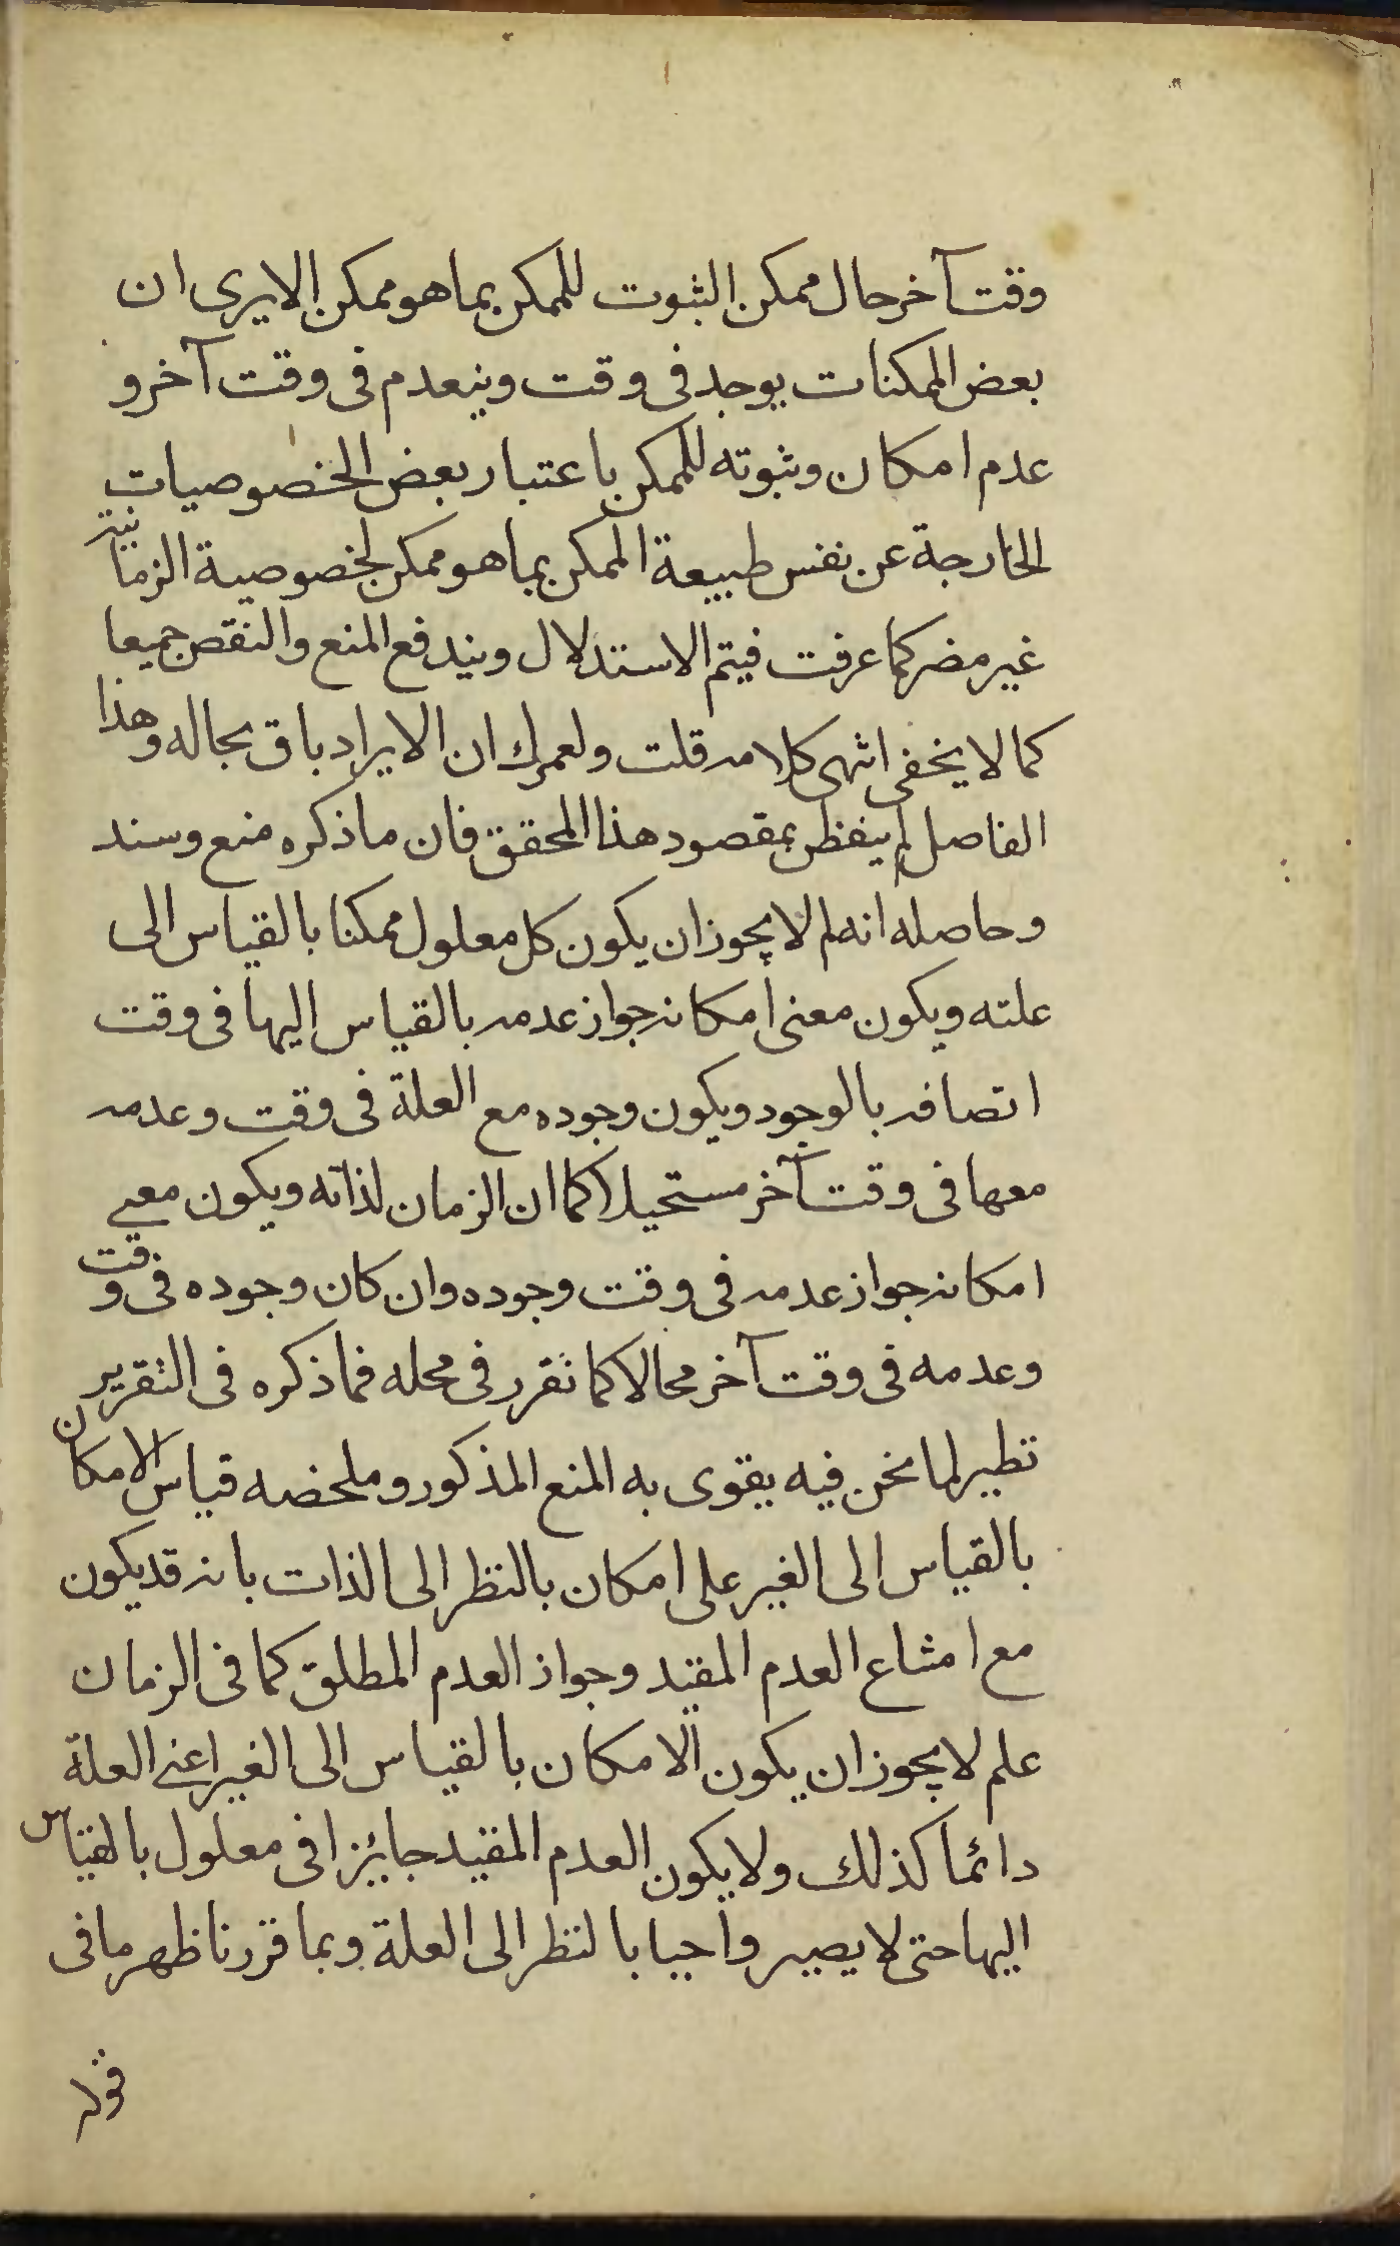 وقت آخر حال ممكن الثبوت للممكن بما هو ممكن الا يرى ان
بعض الممكنات يوجد فى وقت وينعدم فى وقت آخر و
عدم امكان وثبوته للممكن باعتبار بعض الخصوصيات
الخارجة عن نفس طبيعة الممكن بما هو ممكن لخصوصية الزمانية
غير مضر كما عرفت فيتم الاستدلال ويندفع المنع والنقص جميعا
كما لا يخفى انتهى كلامه قلت ولعمرك ان الايراد باق بحاله وهذا
الفاصل لم يتفطن بمقصود هذا المحقق فان ما ذكره منع وسند
وحاصله انه لم لا يجوز ان يكون كل معلول ممكنا بالقياس الى
علته ويكون معنى امكانه جواز عدمه بالقياس اليها فى وقت
اتصافه بالوجود ويكون وجوده مع العلة فى وقت وعدمه
معها فى وقت آخر مستحيلا كما ان الزمان لذاته ويكون معنى
امكانه جواز عدمه فى وقت وجوده وان كان وجوده فى وقت
وعدمه فى وقت آخر محالا كما تقرر فى محله فما ذكره فى التقرير
تظير لما نحن فيه يقوى به المنع المذكور وملخصه قياس الامكان
بالقياس الى الغير على امكان بالنظر الى الذات بانه قد يكون
مع امتناع العدم المقيد وجواز العدم المطلق كما فى الزمان
علم لا يجوز ان يكون الامكان بالقياس الى الغير اعنى العلة
دائما كذلك ولا يكون العدم المقيد جايزا فى معلول بالقياس
اليها حتى لا يصير واجبا بالنظر الى العلة وبما قررنا ظهر ما فى
قوله